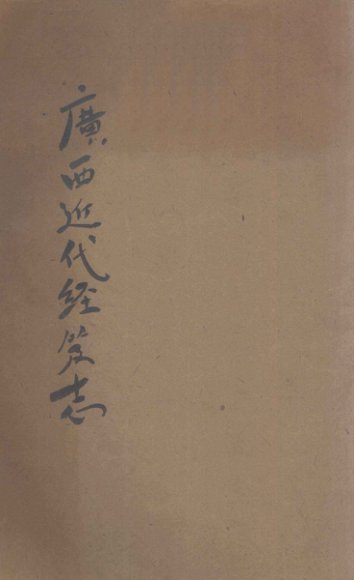 廣西近代经笈志